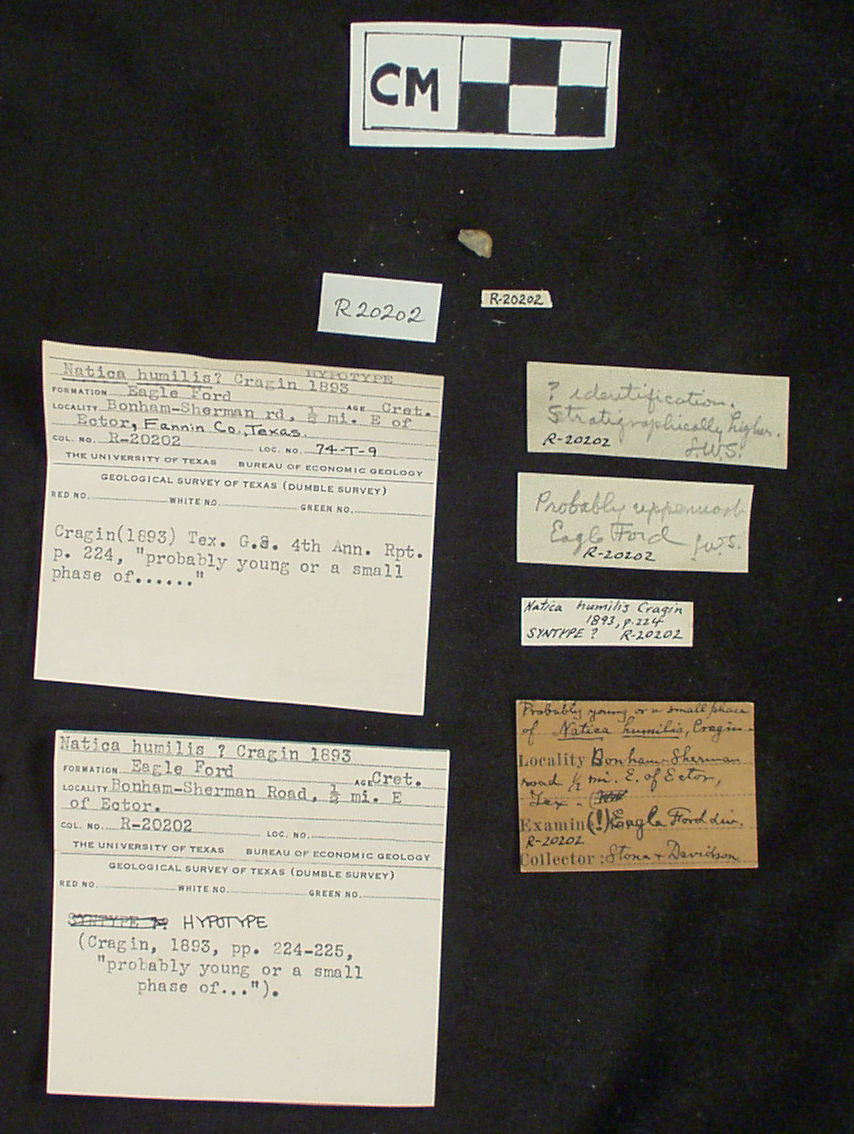 CM
R 20202
R-20202
HYPOTYPE
Natica humilis? Cragin 1893
FORMATION Eagle Ford AGE Cret.
LOCALITY Bonham-Sherman rd, ½ mi. E of
Ector, Fannin Co., Texas.
COL. NO. R-20202 LOC. NO. 74-T-9
THE UNIVERSITY OF TEXAS BUREAU OF ECONOMIC GEOLOGY
GEOLOGICAL SURVEY OF TEXAS (DUMBLE SURVEY)
RED NO. WHITE NO. GREEN NO.
Cragin(1893) Tex. G.S. 4th Ann. Rpt.
p. 224, "probably young or a small
phase of......"
? identification.
Stratigraphically higher.
R-20202 J.W.S.
Probably uppermost
Eagle Ford J.W.S.
R-20202
Natica humilis Cragin
1893, p.224
SYNTYPE ? R-20202
Probably young or a small phase
of Natica humilis, Cragin
Locality Bonham-Sherman
road ½ mi. E. of Ector,
Tex.
Examin(!) Eagle Ford div.
R-20202
Collector: Stone & Davidson
Natica humilis ? Cragin 1893
FORMATION Eagle Ford AGE Cret.
LOCALITY Bonham-Sherman Road, ½ mi. E
of Ector.
COL. NO. R-20202 LOC. NO.
THE UNIVERSITY OF TEXAS BUREAU OF ECONOMIC GEOLOGY
GEOLOGICAL SURVEY OF TEXAS (DUMBLE SURVEY)
RED NO. WHITE NO. GREEN NO.
SYNTYPE ? HYPOTYPE
(Cragin, 1893, pp. 224-225,
"probably young or a small
phase of...").